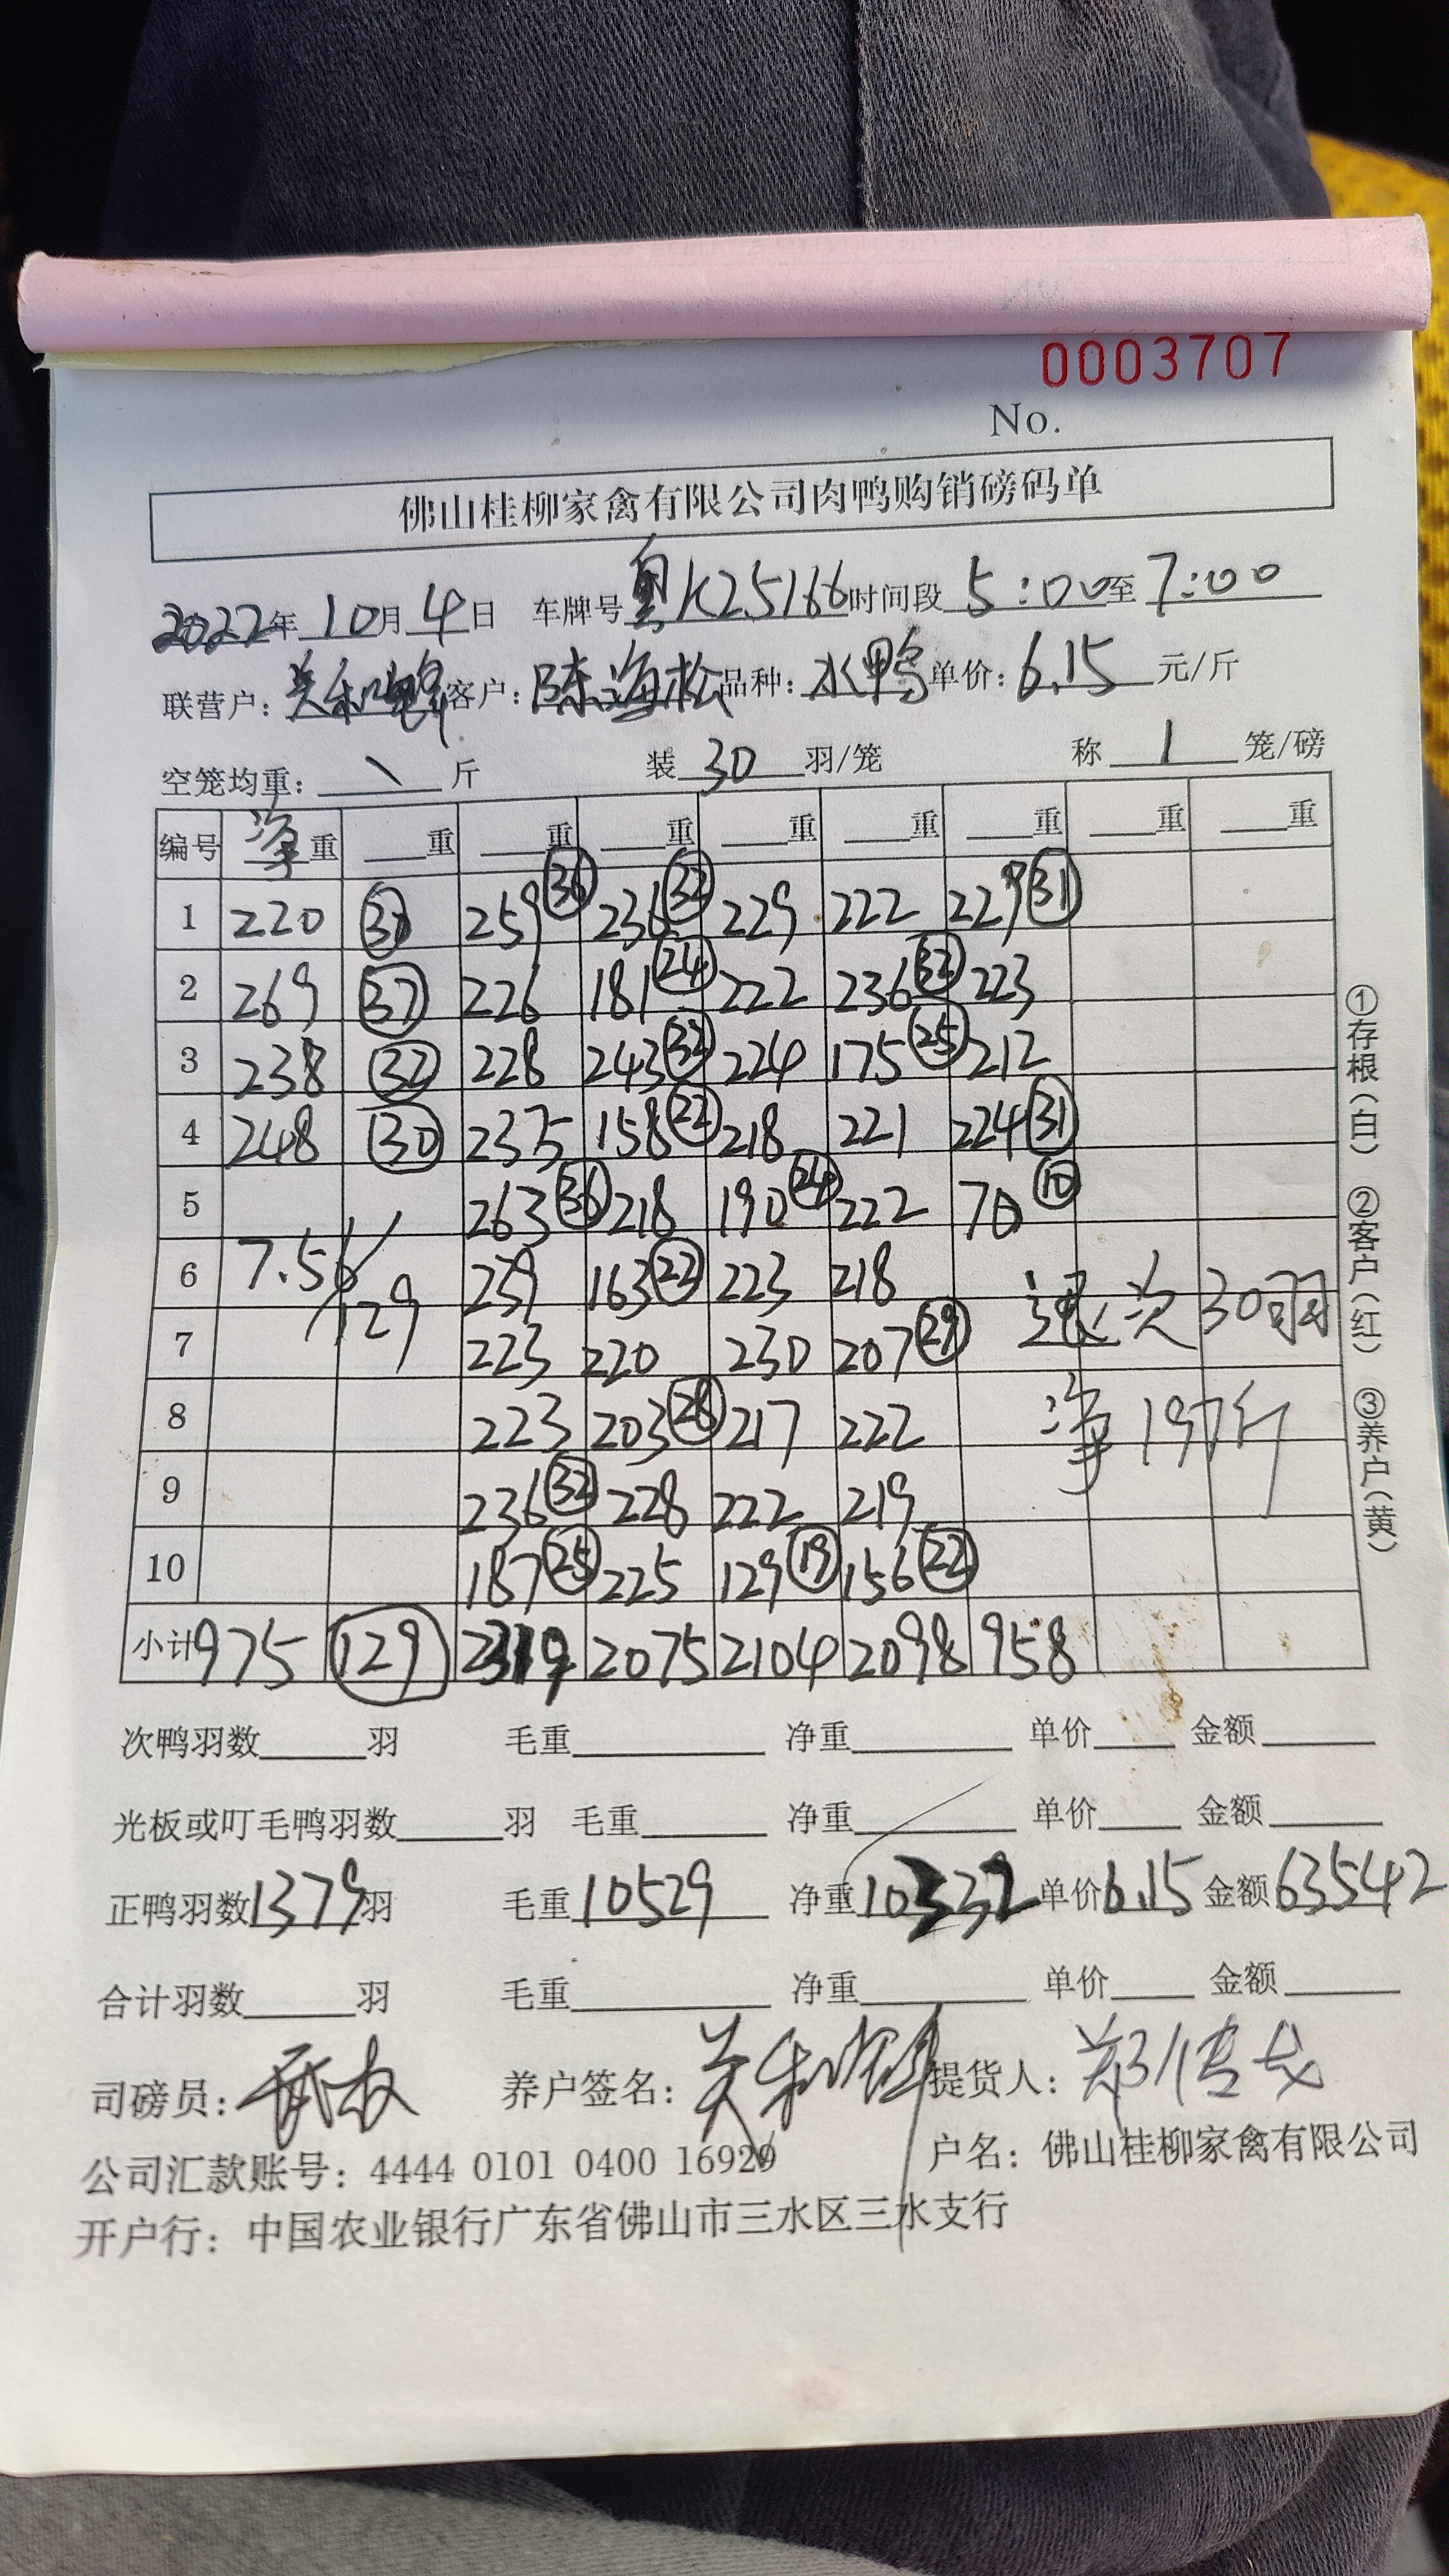 0003707
No.
佛山桂柳家禽有限公司肉鸭购销磅码单
2022年10月4日 车牌号粤K25166时间段5:00至7:00
联营户: 关和 客户: 陈海松 品种: 水鸭 单价: 6.15 元/斤
空笼均重: 斤 装30羽/笼 称1笼/磅
编号 净重 重 重 重 重 重 重 重 重
1 220 30 259 36 236 32 229 222 229 31
2 269 37 226 181 24 222 236 32 223
3 238 32 228 243 32 224 175 25 212
4 248 30 235 158 22 218 221 224 31
5 263 36 218 190 24 222 70 10
6 7.56/129 239 163 22 223 218 退次30羽
7 223 220 230 207 29
8 223 203 28 217 222 净197斤
9 236 32 228 222 219
10 187 25 225 129 19 156 22
小计 975 129 2319 2075 2104 2098 958
①存根(白) ②客户(红) ③养户(黄)
次鸭羽数 羽 毛重 净重 单价 金额
光板或叮毛鸭羽数 羽 毛重 净重 单价 金额
正鸭羽数1379羽 毛重10529 净重10332 单价6.15 金额63542
合计羽数 羽 毛重 净重 单价 金额
司磅员: 养户签名: 关和 提货人: 郑
公司汇款账号: 4444 0101 0400 16929 户名: 佛山桂柳家禽有限公司
开户行: 中国农业银行广东省佛山市三水区三水支行